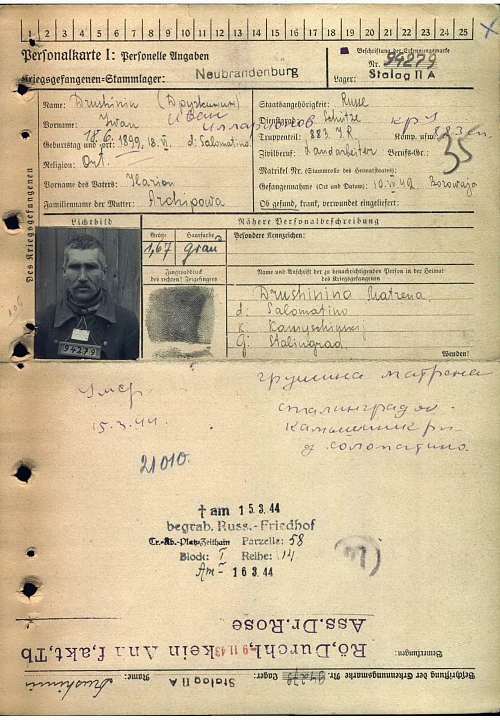 1 2 3 4 5 6 7 8 9 10 11 12 13 14 15 16 17 18 19 20 21 22 23 24 25
Personalkarte I: Personelle Angaben
Beschriftung der Erkennungsmarke
Nr. 94279
Kriegsgefangenen-Stammlager: Neubrandenburg
Lager: Stalag II A
Des Kriegsgefangenen
Name: Drushinin
Vorname: Iwan Иван
Geburtstag und -ort: 18.6.1899, d. Salomatino
Religion: Ort.
Vorname des Vaters: Ilarion
Familienname der Mutter: Archipowa
Staatsangehörigkeit: Russe
Dienstgrad: Schütze
Truppenteil: 883. J.R. Komp. usw.:
Zivilberuf: Landarbeiter Berufs-Gr.: 35
Matrikel Nr. (Stammrolle des Heimatstaates):
Gefangennahme (Ort und Datum): 10. 42,
Ob gesund, krank, verwundet eingeliefert:
Lichtbild
Nähere Personalbeschreibung
Größe Haarfarbe Besondere Kennzeichen:
1,67 grau
Fingerabdruck
des rechten Zeigefingers
Name und Anschrift der zu benachrichtigenden Person in der Heimat
des Kriegsgefangenen
Drushinina Matrena
d: Salomatino
G: Stalingrad
94279
Wenden!
Умер
15.3.44.
матрена
21010.
† am 15 3. 44
begrab. Russ.-Friedhof
Tr.-Üb.-Platz Zeithain Parzelle: 58
Block: I Reihe: 14
Am 16 3. 44
Bemerkungen:
Rö, Durchl, 9 11 43 kein Anh f, akt, Tb
Ass. Dr. Rose
Beschriftung der Erkennungsmarke Nr. 94279 Lager: Stalag II A Name: Drushinin